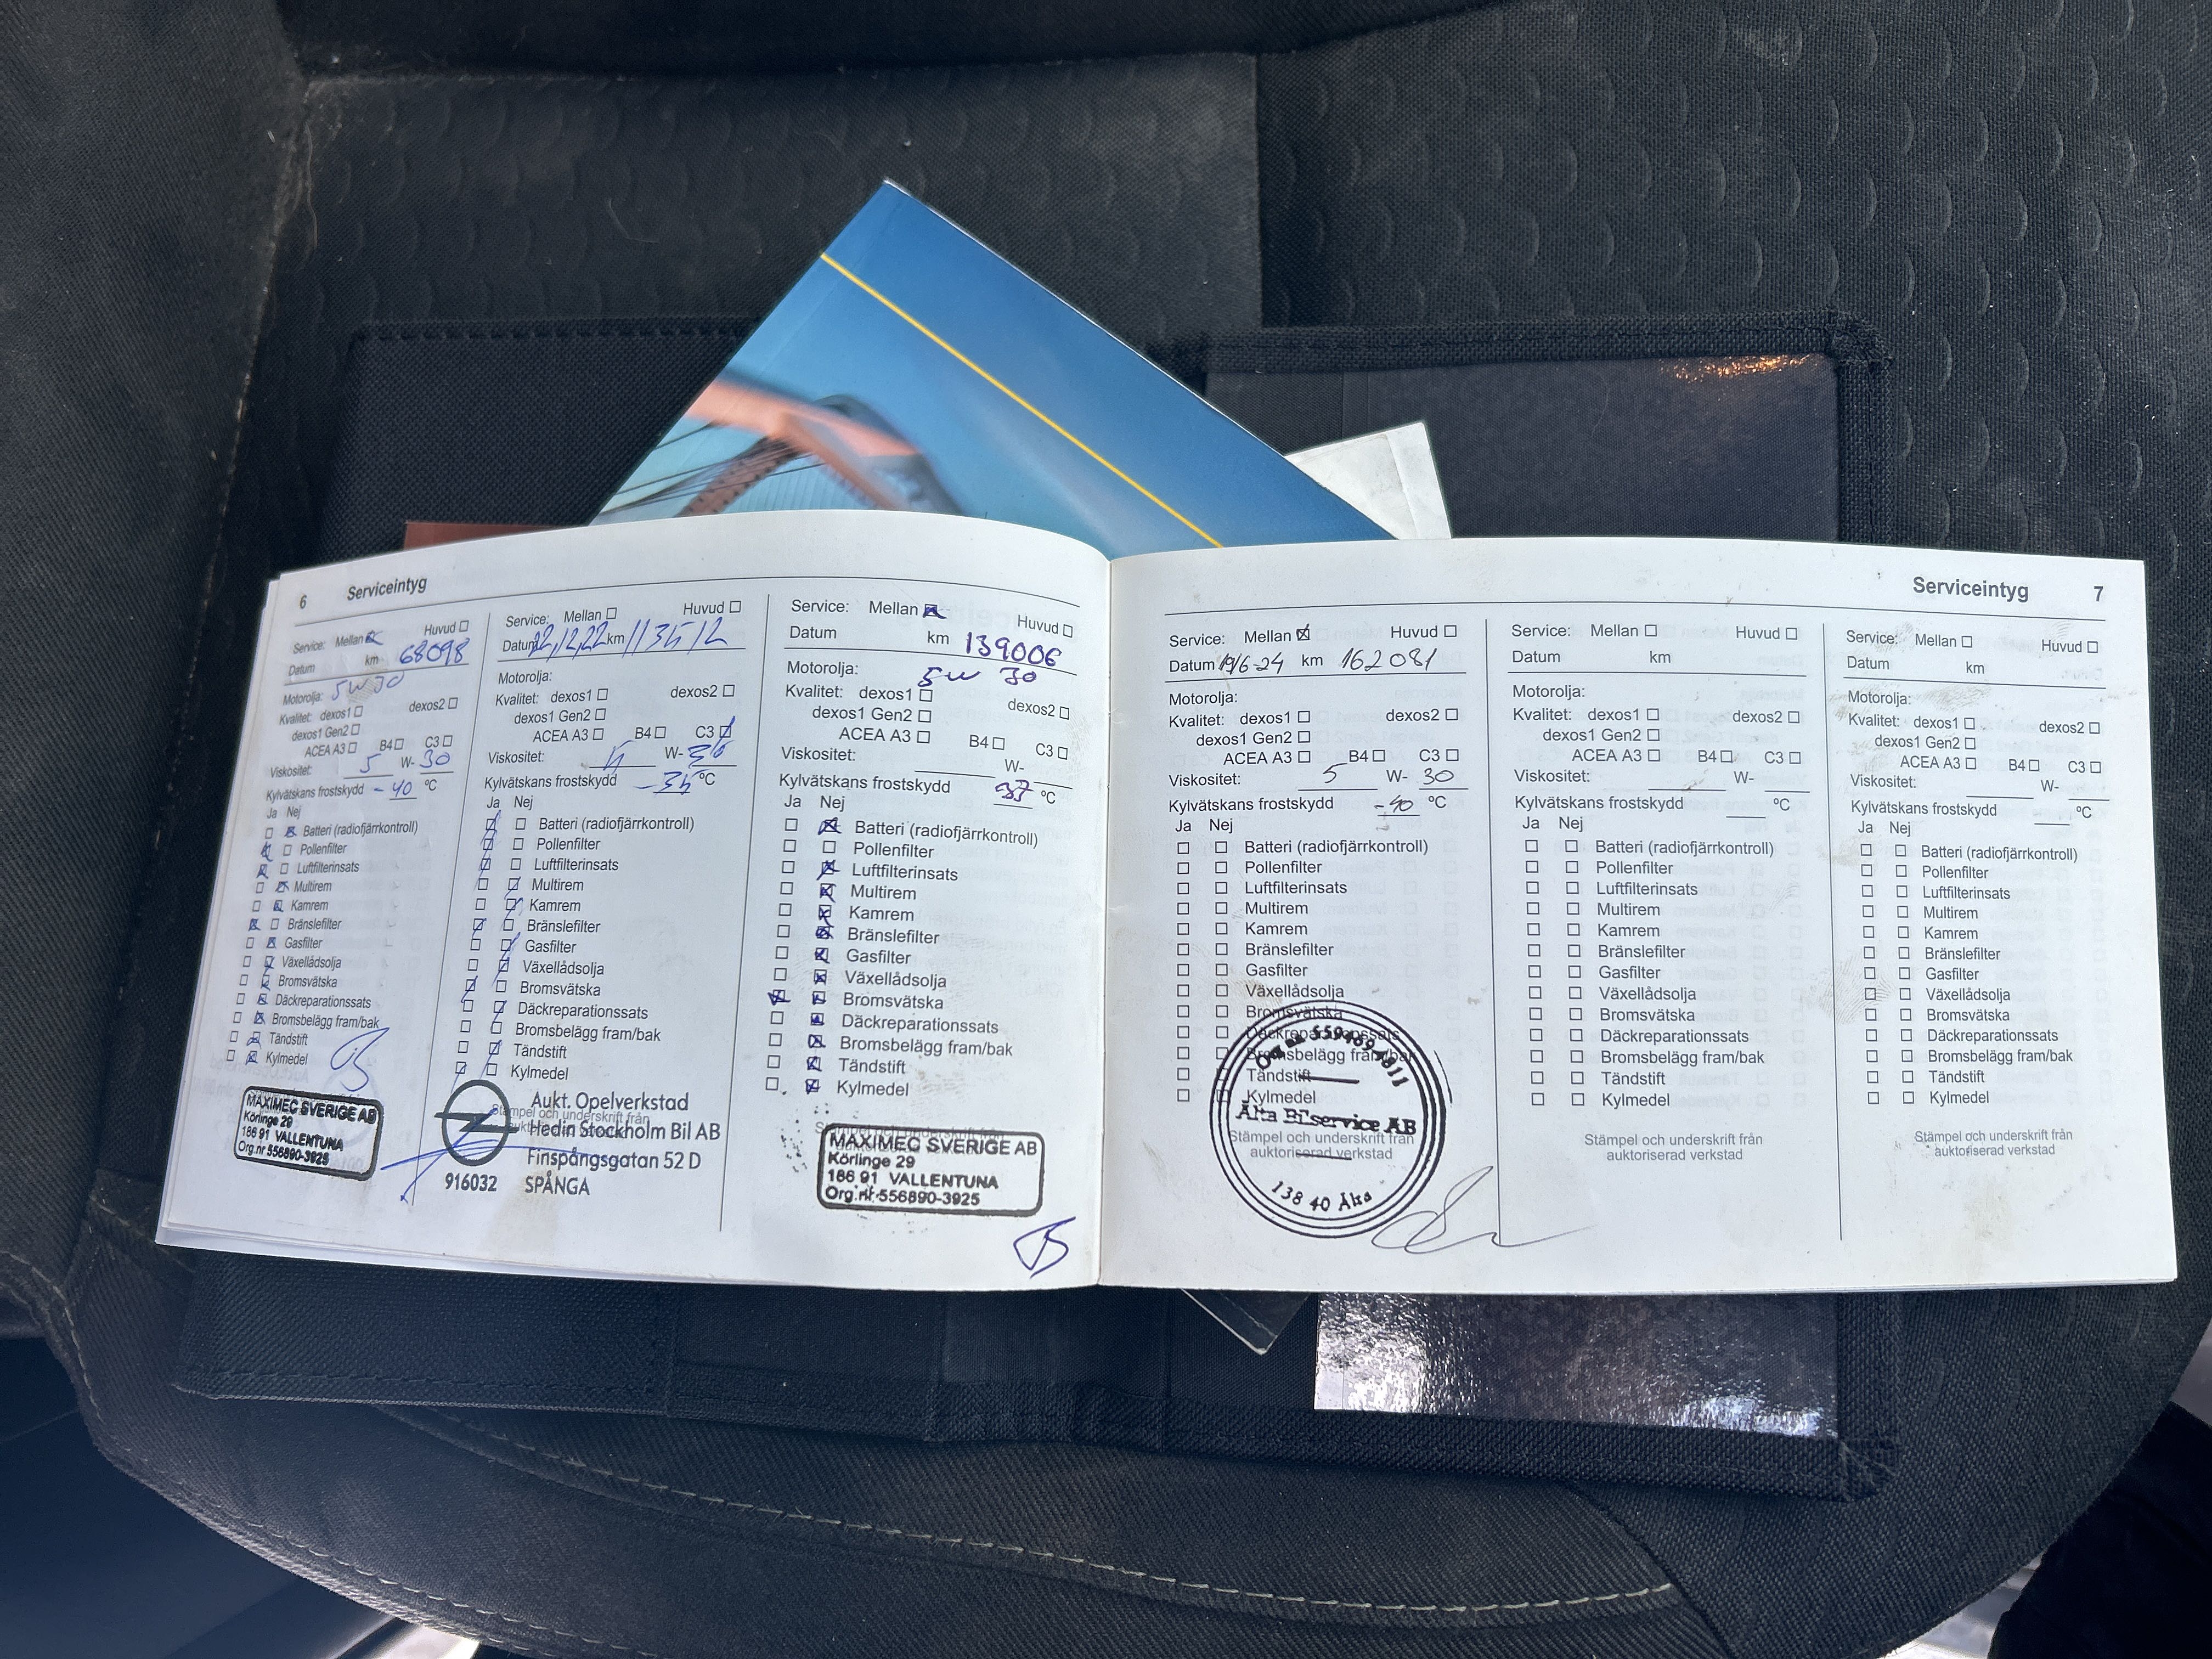 6 Serviceintyg
Service: Mellan Huvud
Datum km 68098
Motorolja: 5W30
Kvalitet: dexos1 dexos2
dexos1 Gen2
ACEA A3 B4 C3
Viskositet: 5 W- 30
Kylvätskans frostskydd -40 °C
Ja Nej
Batteri (radiofjärrkontroll)
Pollenfilter
Luftfilterinsats
Multirem
Kamrem
Bränslefilter
Gasfilter
Växellådsolja
Bromsvätska
Däckreparationssats
Bromsbelägg fram/bak
Tändstift
Kylmedel
MAXIMEC SVERIGE AB
Körlinge 29
186 91 VALLENTUNA
Org.nr 556890-3925
Service: Mellan Huvud
Datum 22,12,22 km 113512
Motorolja:
Kvalitet: dexos1 dexos2
dexos1 Gen2
ACEA A3 B4 C3
Viskositet: W-
Kylvätskans frostskydd -35 °C
Ja Nej
Batteri (radiofjärrkontroll)
Pollenfilter
Luftfilterinsats
Multirem
Kamrem
Bränslefilter
Gasfilter
Växellådsolja
Bromsvätska
Däckreparationssats
Bromsbelägg fram/bak
Tändstift
Kylmedel
Stämpel och underskrift från
Aukt. Opelverkstad
Hedin Stockholm Bil AB
Finspångsgatan 52 D
916032 SPÅNGA
Service: Mellan Huvud
Datum km 139006
Motorolja: 5w 30
Kvalitet: dexos1 dexos2
dexos1 Gen2
ACEA A3 B4 C3
Viskositet: W-
Kylvätskans frostskydd 37 °C
Ja Nej
Batteri (radiofjärrkontroll)
Pollenfilter
Luftfilterinsats
Multirem
Kamrem
Bränslefilter
Gasfilter
Växellådsolja
Bromsvätska
Däckreparationssats
Bromsbelägg fram/bak
Tändstift
Kylmedel
MAXIMEC SVERIGE AB
Körlinge 29
186 91 VALLENTUNA
Org.nr 556890-3925
Serviceintyg 7
Service: Mellan Huvud
Datum 19/6-24 km 162081
Motorolja:
Kvalitet: dexos1 dexos2
dexos1 Gen2
ACEA A3 B4 C3
Viskositet: 5 W- 30
Kylvätskans frostskydd -40 °C
Ja Nej
Batteri (radiofjärrkontroll)
Pollenfilter
Luftfilterinsats
Multirem
Kamrem
Bränslefilter
Gasfilter
Växellådsolja
Bromsvätska
Däckreparationssats
Bromsbelägg fram/bak
Tändstift
Kylmedel
Älta Bilservice AB
Stämpel och underskrift från
auktoriserad verkstad
138 40 Älta
Service: Mellan Huvud
Datum km
Motorolja:
Kvalitet: dexos1 dexos2
dexos1 Gen2
ACEA A3 B4 C3
Viskositet: W-
Kylvätskans frostskydd °C
Ja Nej
Batteri (radiofjärrkontroll)
Pollenfilter
Luftfilterinsats
Multirem
Kamrem
Bränslefilter
Gasfilter
Växellådsolja
Bromsvätska
Däckreparationssats
Bromsbelägg fram/bak
Tändstift
Kylmedel
Stämpel och underskrift från
auktoriserad verkstad
Service: Mellan Huvud
Datum km
Motorolja:
Kvalitet: dexos1 dexos2
dexos1 Gen2
ACEA A3 B4 C3
Viskositet: W-
Kylvätskans frostskydd °C
Ja Nej
Batteri (radiofjärrkontroll)
Pollenfilter
Luftfilterinsats
Multirem
Kamrem
Bränslefilter
Gasfilter
Växellådsolja
Bromsvätska
Däckreparationssats
Bromsbelägg fram/bak
Tändstift
Kylmedel
Stämpel och underskrift från
auktoriserad verkstad